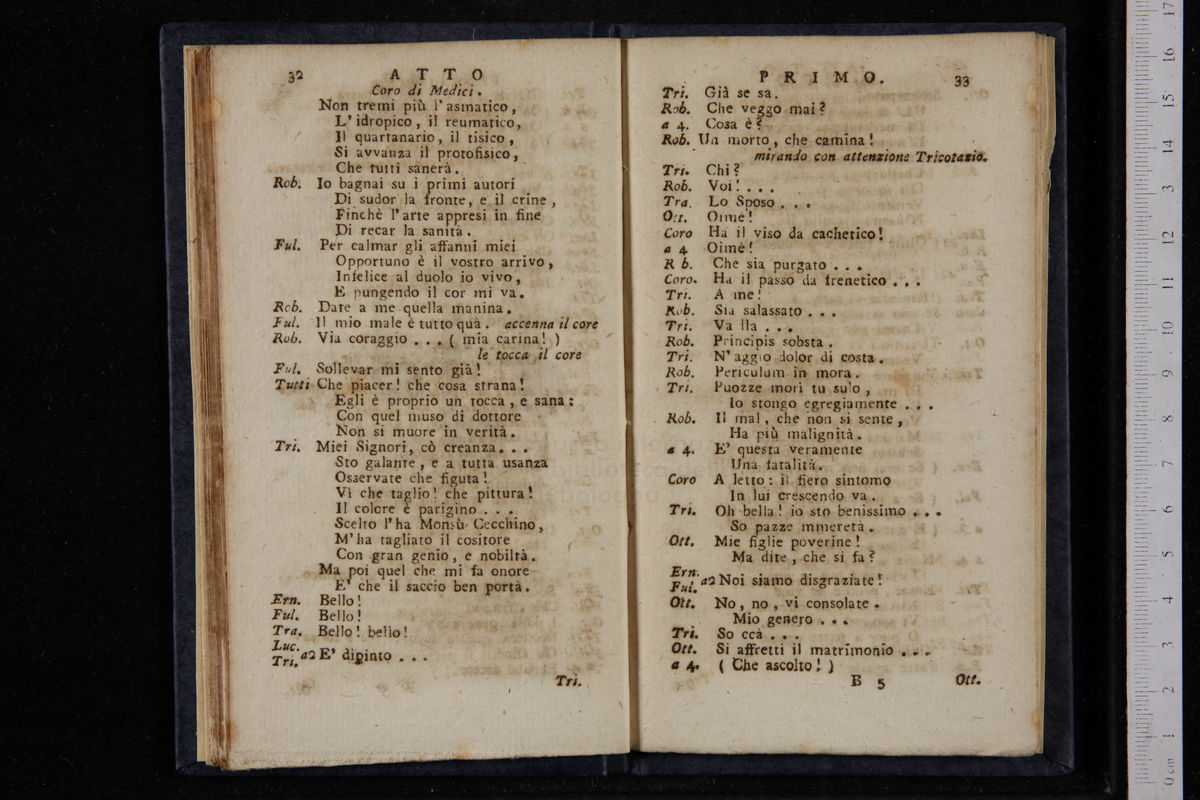 32 ATTO
Coro di Medici.
Non tremi più l'asmatico,
L'idropico, il reumatico,
Il quartanario, il tisico,
Si avvanza il protofisico,
Che tutti sanerà.
Rob. Io bagnai su i primi autori
Di sudor la fronte, e il crine,
Finchè l'arte appresi in fine
Di recar la sanità.
Ful. Per calmar gli affanni miei
Opportuno è il vostro arrivo,
Infelice al duolo io vivo,
E pungendo il cor mi va.
Rob. Date a me quella manina.
Ful. Il mio male è tutto quà. accenna il core
Rob. Via coraggio... ( mia carina! )
le tocca il core
Ful. Sollevar mi sento già!
Tutti Che piacer! che cosa strana!
Egli è proprio un tocca, e sana:
Con quel muso di dottore
Non si muore in verità.
Tri. Miei Signori, cò creanza...
Sto galante, e a tutta usanza
Osservate che figuta!
Vì che taglio! che pittura!
Il colore è parigino...
Scelto l'ha Monsù Cecchino,
M'ha tagliato il cositore
Con gran genio, e nobiltà.
Ma poi quel che mi fa onore
E' che il saccio ben portà.
Ern. Bello!
Ful. Bello!
Tra. Bello! bello!
Luc.
Tri. a2 E' dipinto...
Tri.
PRIMO. 33
Tri. Già se sa.
Rob. Che veggo mai?
a 4. Cosa è?
Rob. Un morto, che camina!
mirando con attenzione Tricotazio.
Tri. Chi?
Rob. Voi!...
Tra. Lo Sposo...
Ott. Oimè!
Coro Ha il viso da cachetico!
a 4 Oimè!
R b. Che sia purgato...
Coro. Ha il passo da frenetico...
Tri. A me!
Rob. Sia salassato...
Tri. Va lla...
Rob. Principis sobsta.
Tri. N'aggio dolor di costa.
Rob. Periculum in mora.
Tri. Puozze morì tu sulo,
Io stongo egregiamente...
Rob. Il mal, che non si sente,
Ha più malignità.
a 4. E' questa veramente
Una fatalità.
Coro A letto: il fiero sintomo
In lui crescendo va.
Tri. Oh bella! io sto benissimo...
So pazze mmeretà.
Ott. Mie figlie poverine!
Ma dite, che si fa?
Ern.
Ful. a2 Noi siamo disgraziate!
Ott. No, no, vi consolate.
Mio genero...
Tri. So ccà...
Ott. Si affretti il matrimonio...
a 4. ( Che ascolto! )
B 5 Ott.
0 cm 1 2 3 4 5 6 7 8 9 10 11 12 13 14 15 16 17